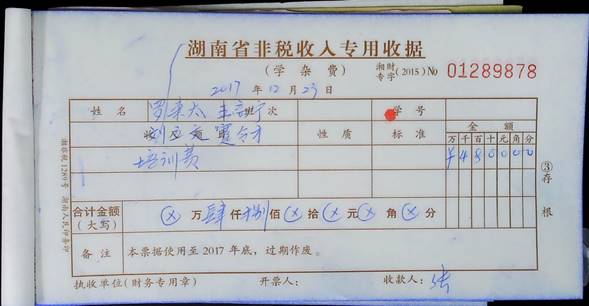 湖南省非税收入专用收据
(学杂费) 湘财专字(2015) No 01289878
2017 年 12 月 23 日
姓名 班次 学号 金额
收费 性质 标准 万 千 百 十 元 角 分
培训费 ¥ 4 8 0 0 0 0
合计金额(大写) ⊗ 万 肆 仟 捌 佰 ⊗ 拾 ⊗ 元 ⊗ 角 ⊗ 分
备注 本票据使用至 2017 年底,过期作废。
执收单位(财务专用章) 开票人: 收款人:
③存根
湖南人民印务印